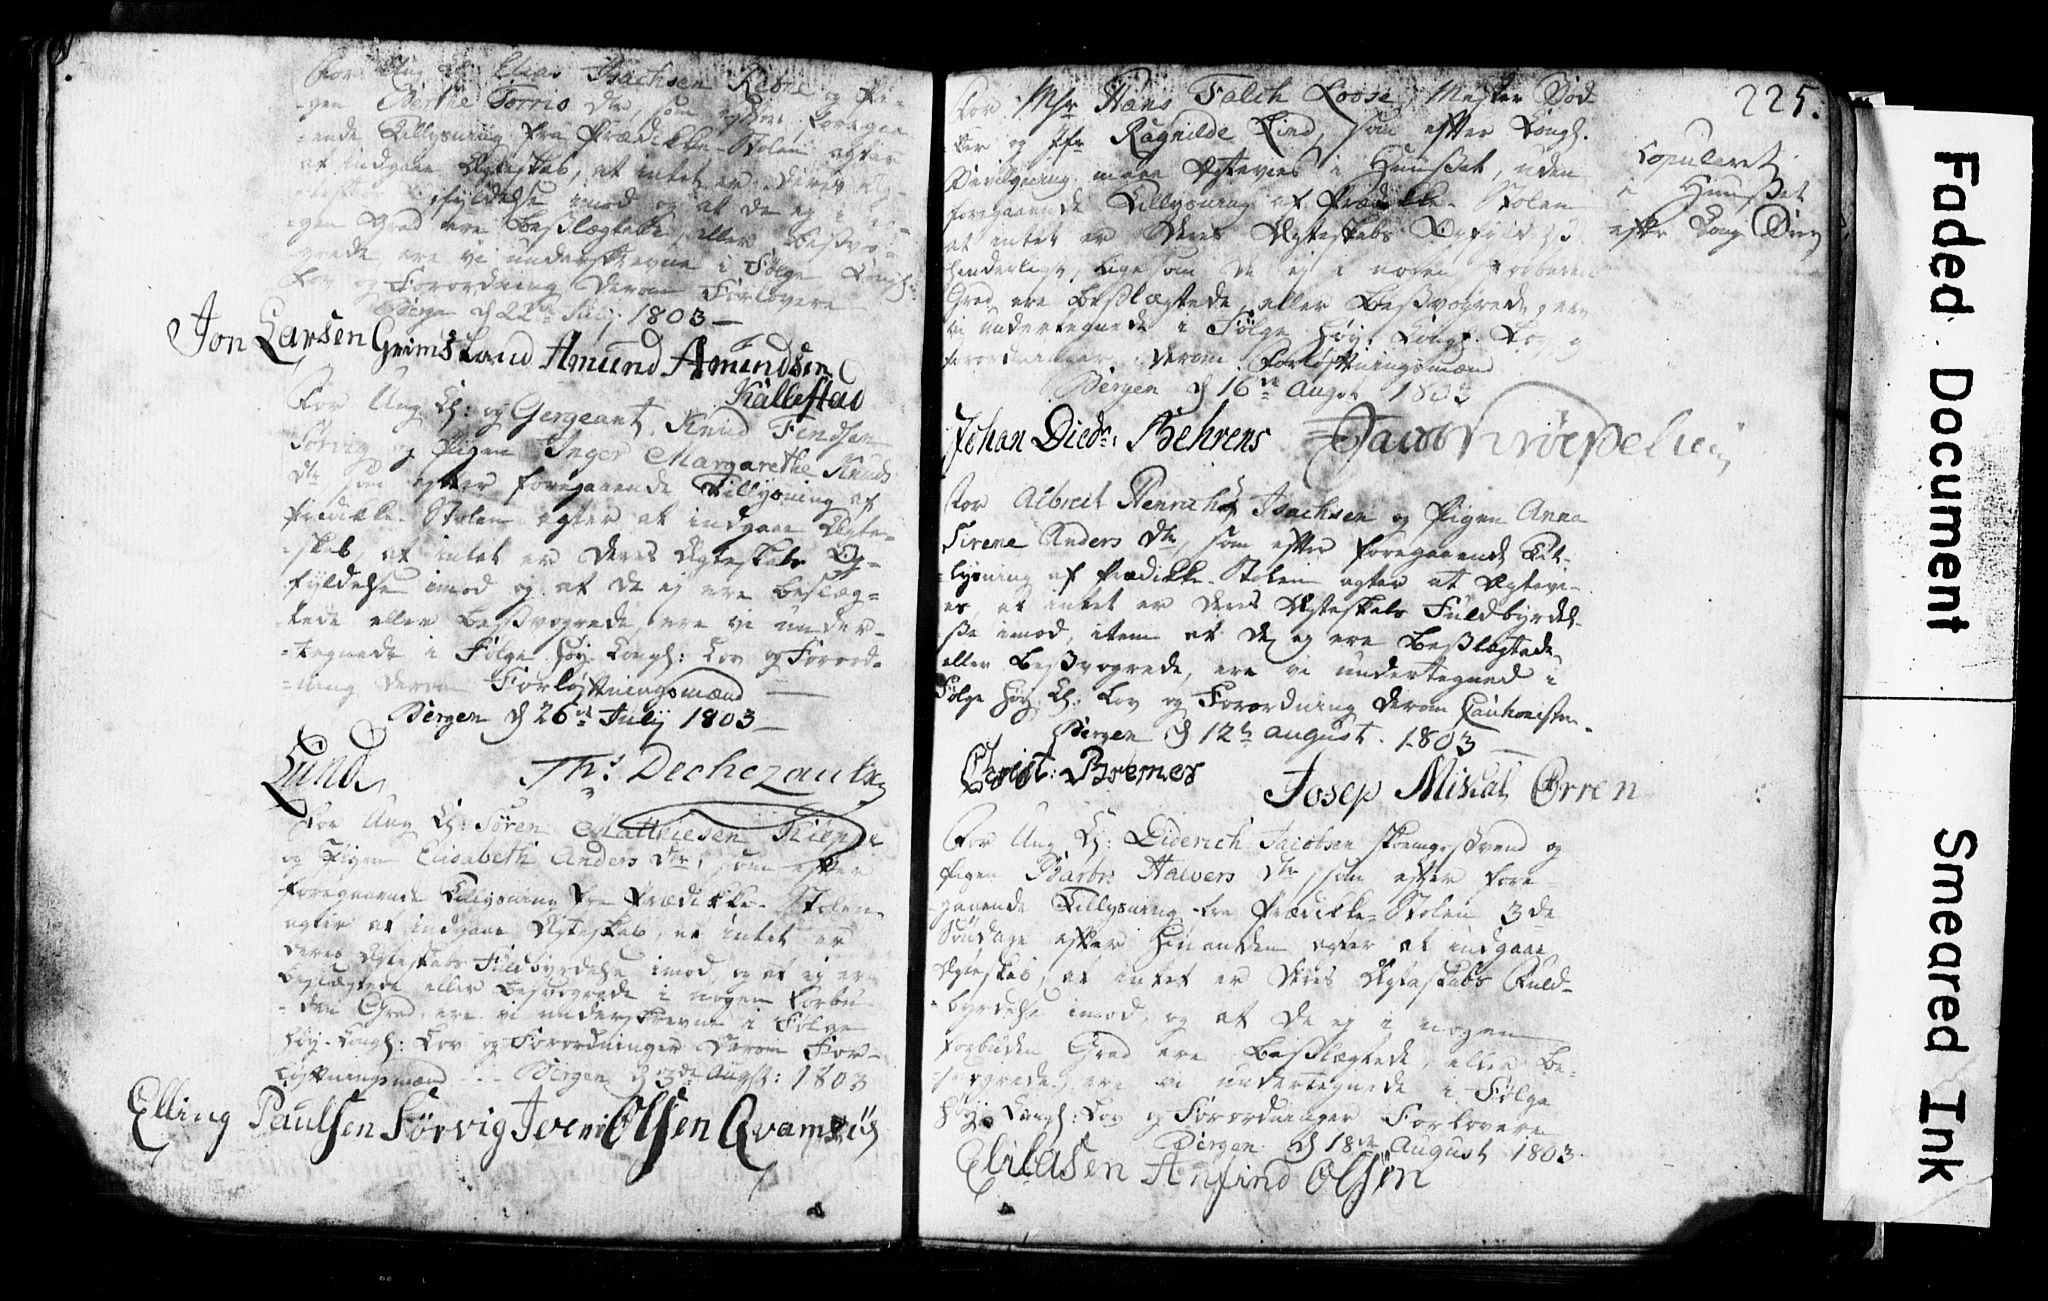 For Ung K: Elias Isachsen Rebne og Pi-
-gen Berthe Torris dtr, som efter foregaa
-ende Tillysning fra Prædikke-Stolen agter
at indgaae Ægteskab, at intet er deres Æg-
fyldelse imod og at de ej i
-gen Grad ere beßlægtede, eller beßvo
-grede, ere vi underskrevne i Følge Kongl:
Lov og Forordning derom Forlovere
Bergen d 22de July 1803
Jon Larsen Grimsland Amund Amundsen
Kallestad
For Ung K: og Sergeant, Knud Findsen
Sørvig og Pigen Inger Margarethe Knuds
dtr som efter foregaaende Tillysning af
Prædikke-Stolen agter at indgaae Ægte-
-skab, at intet er deres Ægteskabs Op-
fyldelse imod og at de ej ere beslæg=
tede eller beßvogrede, ere vi under-
-tegnede i Følge høy Kongl: Lov og Forord-
-ning derom Forløftningsmænd
Bergen d 26de July 1803
Lund Ths Dechezaulx
For Ung K: Søren Mathiesen Kleppe
og Pigen Elisabeth Anders dtr, som efter
foregaaende Tillysning fra Prædikke-Stolen
agter at indgaae Ægteskab, at intet er
deres Ægteskabs Fuldbyrdelse imod, og at ej er
beslægtede eller besvogrede i nogen forbu
-den Grad, ere vi underskrevne i Følge
høy-Kongl: Lov og Forordninger derom For-
løftningsmænd -- Bergen d 3de Augst: 1803
Elling Paulsen Sørvig Iver Olsen Qvamsøÿ
225.
For Mr Hans Falch Loose, Mester Bød
ker og Jfr Ragnilde Lind, som efter Kongl.
Bevilgning maae Ægtevies i Huuset, uden
foregaaende Tillysning af Prædikke-Stolen
at intet er deres Ægteskabs
hinderligt, lige som de ej i noden forbuden
Grad ere beßlægtede, eller beßvogrede, ere
vi undertegnede i Følge høy Kongl: Lov og
forordninger derom Forløftningsmænd
Bergen d 16de Augst 1803
Copuleret
i Huuset
efter Kong Brev
Johan Diedr: Behrens
For Albreit Henrich Isachsen og Pigen Anna
Sirene Anders dtr, som efter foregaaende Til-
-lysning af Prædikke-Stolen agter at Ægtevi-
es, at intet er deres Ægteskabs Fuldbyrdel-
ße imod, item at de ej ere beßlægtede
eller beßvogrede, ere vi undertegned i
Følge høy K: Lov og Forordning derom Cautionister
Bergen d 12te August. 1803
Christ: Bremer Josep Mikal Orren
For Ung K: Diderich Jacobsen Skomgr Svend og
Pigen Barbr: Halvers dtr som efter fore-
gaaende Tillysning fra Prædikke-Stolen 3de
Søndage efter hinanden agter at indgaae
Ægteskab, at intet er deres Ægteskabs Fuld-
-byrdelse imod, og at de ej i nogen
forbuden Grad ere beßlægtede, eller be-
-svogrede, ere vi undertegnede i Følge
høy. Kongl: Lov og Forordninger Forlovere
Bergen d 18de August 1803
Eliasen Anfind Olsen
Faded Document
Smeared Ink